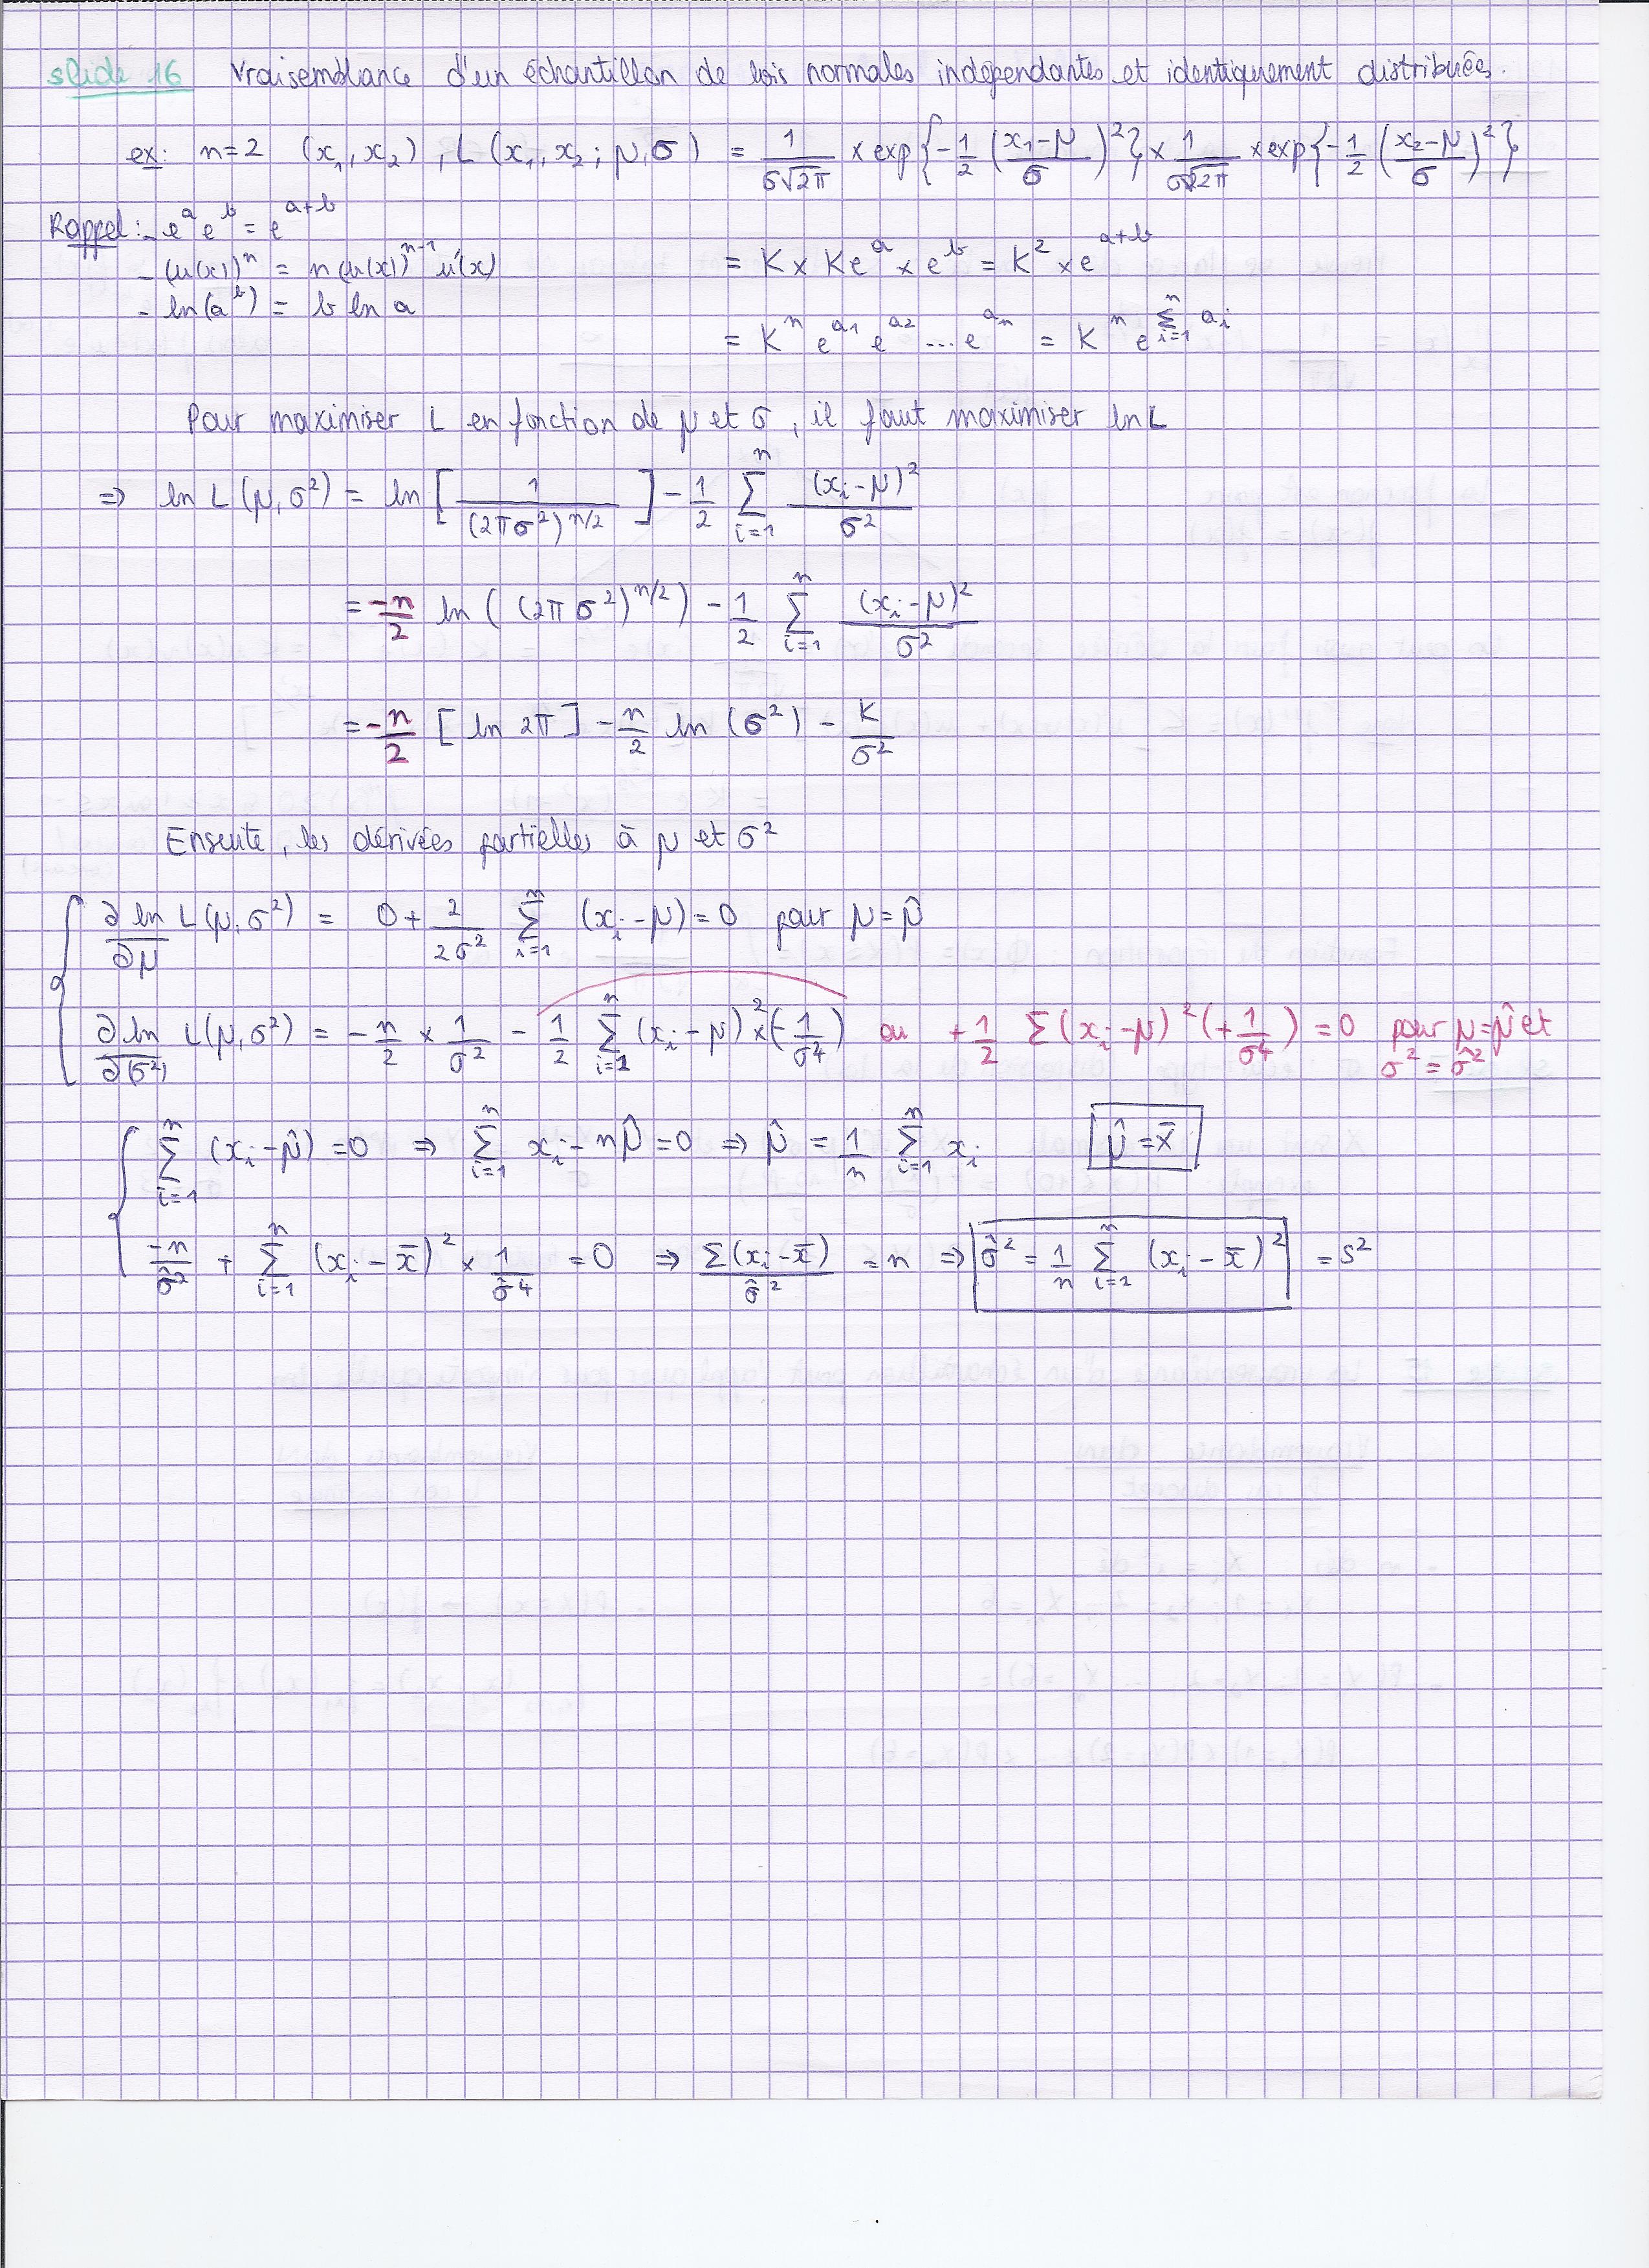 slide 16 Vraisemblance d'un échantillon de lois normales indépendantes et identiquement distribuées.
ex: n=2 (x₁, x₂), L(x₁, x₂; μ, σ) = 1/(σ√2π) × exp{-1/2 ((x₁-μ)/σ)²} × 1/(σ√2π) × exp{-1/2 ((x₂-μ)/σ)²}
Rappel: - e^a e^b = e^(a+b)
- (u(x))^n = n(u(x))^(n-1) u'(x) = K × K e^a × e^b = K² × e^(a+b)
- ln(a^b) = b ln a
= K^n e^(a₁) e^(a₂) ... e^(aₙ) = K^n e^(Σ_{i=1}^n a_i)
Pour maximiser L en fonction de μ et σ, il faut maximiser ln L
⇒ ln L(μ, σ²) = ln [1/(2πσ²)^(n/2)] - 1/2 Σ_{i=1}^n (x_i-μ)²/σ²
= -n/2 ln((2πσ²)^(n/2)) - 1/2 Σ_{i=1}^n (x_i-μ)²/σ²
= -n/2 [ln 2π] - n/2 ln(σ²) - K/σ²
Ensuite, les dérivées partielles à μ et σ²
∂ln/∂μ L(μ, σ²) = 0 + 2/(2σ²) Σ_{i=1}^n (x_i-μ) = 0 pour μ = μ̂
∂ln/∂(σ²) L(μ, σ²) = -n/2 × 1/σ² - 1/2 Σ_{i=1}^n (x_i-μ)² × (-1/σ⁴) ou +1/2 Σ(x_i-μ)² (+1/σ⁴) = 0 pour μ=μ̂ et
σ² = σ̂²
Σ_{i=1}^n (x_i-μ̂) = 0 ⇒ Σ_{i=1}^n x_i - nμ̂ = 0 ⇒ μ̂ = 1/n Σ_{i=1}^n x_i μ̂ = x̄
-n/σ̂² + Σ_{i=1}^n (x_i-x̄)² × 1/σ̂⁴ = 0 ⇒ Σ(x_i-x̄)/σ̂² = n ⇒ σ̂² = 1/n Σ_{i=1}^n (x_i-x̄)² = s²